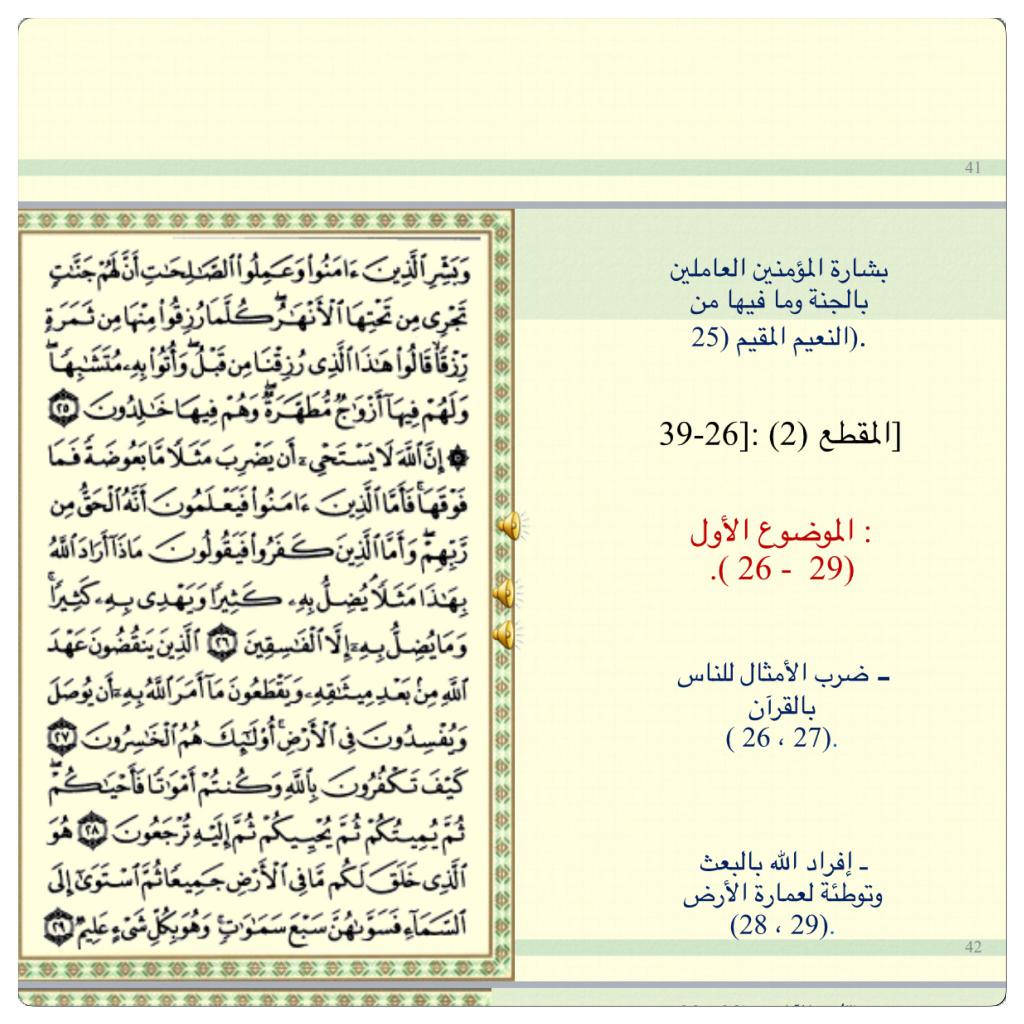 41
وَبَشِّرِ ٱلَّذِينَ ءَامَنُوا۟ وَعَمِلُوا۟ ٱلصَّـٰلِحَـٰتِ أَنَّ لَهُمْ جَنَّـٰتٍ
تَجْرِى مِن تَحْتِهَا ٱلْأَنْهَـٰرُ ۖ كُلَّمَا رُزِقُوا۟ مِنْهَا مِن ثَمَرَةٍ
رِّزْقًا ۙ قَالُوا۟ هَـٰذَا ٱلَّذِى رُزِقْنَا مِن قَبْلُ ۖ وَأُتُوا۟ بِهِۦ مُتَشَـٰبِهًا ۖ
وَلَهُمْ فِيهَآ أَزْوَٰجٌ مُّطَهَّرَةٌ ۖ وَهُمْ فِيهَا خَـٰلِدُونَ ٢٥
۞ إِنَّ ٱللَّهَ لَا يَسْتَحْىِۦٓ أَن يَضْرِبَ مَثَلًا مَّا بَعُوضَةً فَمَا
فَوْقَهَا ۚ فَأَمَّا ٱلَّذِينَ ءَامَنُوا۟ فَيَعْلَمُونَ أَنَّهُ ٱلْحَقُّ مِن
رَّبِّهِمْ ۖ وَأَمَّا ٱلَّذِينَ كَفَرُوا۟ فَيَقُولُونَ مَاذَآ أَرَادَ ٱللَّهُ
بِهَـٰذَا مَثَلًا ۘ يُضِلُّ بِهِۦ كَثِيرًا وَيَهْدِى بِهِۦ كَثِيرًا ۚ
وَمَا يُضِلُّ بِهِۦٓ إِلَّا ٱلْفَـٰسِقِينَ ٢٦ ٱلَّذِينَ يَنقُضُونَ عَهْدَ
ٱللَّهِ مِنۢ بَعْدِ مِيثَـٰقِهِۦ وَيَقْطَعُونَ مَآ أَمَرَ ٱللَّهُ بِهِۦٓ أَن يُوصَلَ
وَيُفْسِدُونَ فِى ٱلْأَرْضِ ۚ أُو۟لَـٰٓئِكَ هُمُ ٱلْخَـٰسِرُونَ ٢٧
كَيْفَ تَكْفُرُونَ بِٱللَّهِ وَكُنتُمْ أَمْوَٰتًا فَأَحْيَـٰكُمْ ۖ
ثُمَّ يُمِيتُكُمْ ثُمَّ يُحْيِيكُمْ ثُمَّ إِلَيْهِ تُرْجَعُونَ ٢٨ هُوَ
ٱلَّذِى خَلَقَ لَكُم مَّا فِى ٱلْأَرْضِ جَمِيعًا ثُمَّ ٱسْتَوَىٰٓ إِلَى
ٱلسَّمَآءِ فَسَوَّىٰهُنَّ سَبْعَ سَمَـٰوَٰتٍ ۚ وَهُوَ بِكُلِّ شَىْءٍ عَلِيمٌ ٢٩
بشارة المؤمنين العاملين
بالجنة وما فيها من
النعيم المقيم (25).
[المقطع (2) :[26-39
الموضوع الأول :
(26 - 29 ).
ـ ضرب الأمثال للناس
بالقرآن
( 26 ، 27).
ـ إفراد الله بالبعث
وتوطئة لعمارة الأرض
(28 ، 29).
42